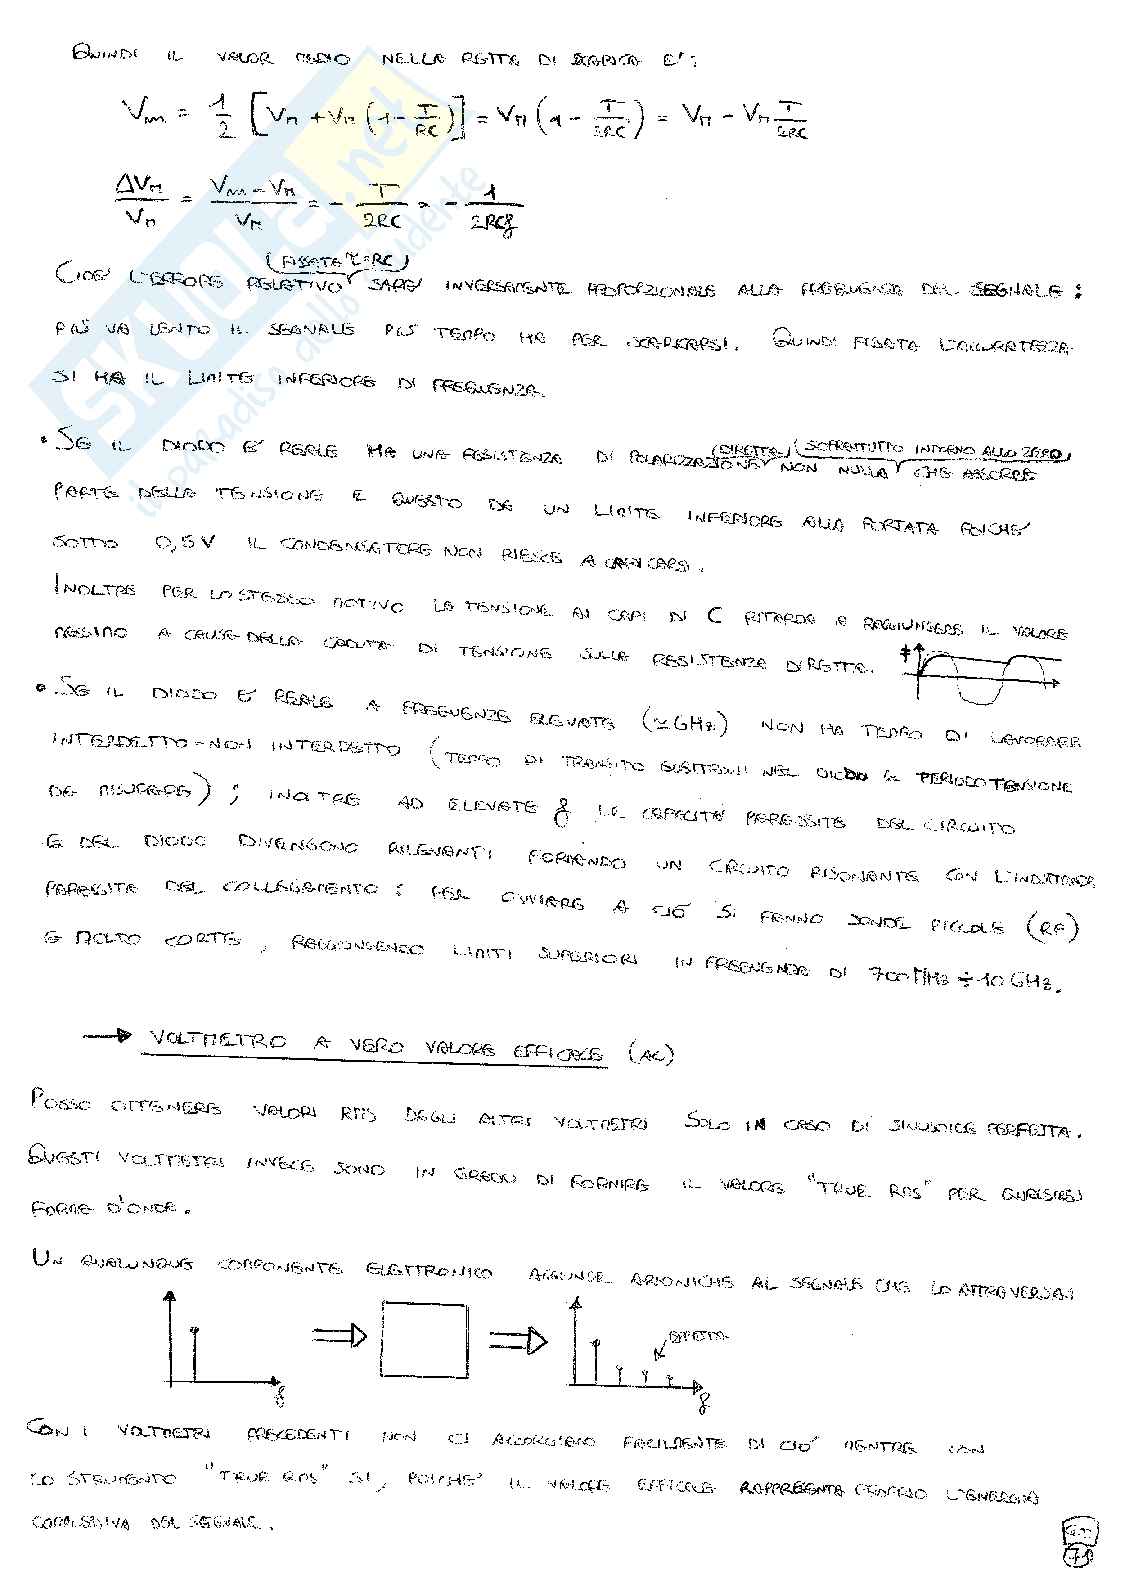 QUINDI IL VALOR MEDIO NELLA RETTA DI SCARICA E':
Vm = 1/2 [VM + VM (1 - T/RC)] = VM (1 - T/2RC) = VM - VM T/2RC
ΔVM/VM = (Vm - VM)/VM = - T/2RC = - 1/2RCf
(FISSATA τ=RC)
CIOE' L'ERRORE RELATIVO SARA' INVERSAMENTE PROPORZIONALE ALLA FREQUENZA DEL SEGNALE:
PIÙ VA LENTO IL SEGNALE PIÙ TEMPO HA PER SCARICARSI. QUINDI FISSATA L'ACCURATEZZA
SI HA IL LIMITE INFERIORE DI FREQUENZA.
(DIRETTA) (SOPRATTUTTO INTORNO ALLO ZERO)
• SE IL DIODO E' REALE HA UNA RESISTENZA DI POLARIZZAZIONE NON NULLA CHE ASSORBE
PARTE DELLA TENSIONE E QUESTO DA UN LIMITE INFERIORE ALLA PORTATA POICHE'
SOTTO 0,5V IL CONDENSATORE NON RIESCE A CARICARSI.
INOLTRE PER LO STESSO MOTIVO LA TENSIONE AI CAPI DI C RITARDA A RAGGIUNGERE IL VALORE
MASSIMO A CAUSA DELLA CADUTA DI TENSIONE SULLA RESISTENZA DIRETTA.
• SE IL DIODO E' REALE A FREQUENZE ELEVATE (≃GHz) NON HA TEMPO DI LAVORARE
INTERDETTO-NON INTERDETTO (TEMPO DI TRANSITO ELETTRONI NEL DIODO PERIODO TENSIONE
DA MISURARE); INOLTRE AD ELEVATE f LE CAPACITA' PARASSITE DEL CIRCUITO
E DEL DIODO DIVENGONO RILEVANTI FORMANDO UN CIRCUITO RISONANTE CON L'INDUTTANZA
PARASSITA DEL COLLEGAMENTO: PER OVVIARE A CIÒ SI FANNO SONDE PICCOLE (RF)
E MOLTO CORTE, RAGGIUNGENDO LIMITI SUPERIORI IN FREQUENZA DI 700MHz ÷ 10GHz.
→ VOLTMETRO A VERO VALORE EFFICACE (AC)
POSSO OTTENERE VALORI RMS DEGLI ALTRI VOLTMETRI SOLO IN CASO DI SINUSOIDE PERFETTA.
QUESTI VOLTMETRI INVECE SONO IN GRADO DI FORNIRE IL VALORE "TRUE RMS" PER QUALSIASI
FORMA D'ONDA.
UN QUALUNQUE COMPONENTE ELETTRONICO AGGIUNGE ARMONICHE AL SEGNALE CHE LO ATTRAVERSA:
f
f
CON I VOLTMETRI PRECEDENTI NON CI ACCORGIAMO FACILMENTE DI CIO' MENTRE CON
LO STRUMENTO "TRUE RMS" SI, POICHE' IL VALORE EFFICACE RAPPRESENTA PROPRIO L'ENERGIA
COMPLESSIVA DEL SEGNALE.
71
SKUOLA.net
il paradiso dello studente